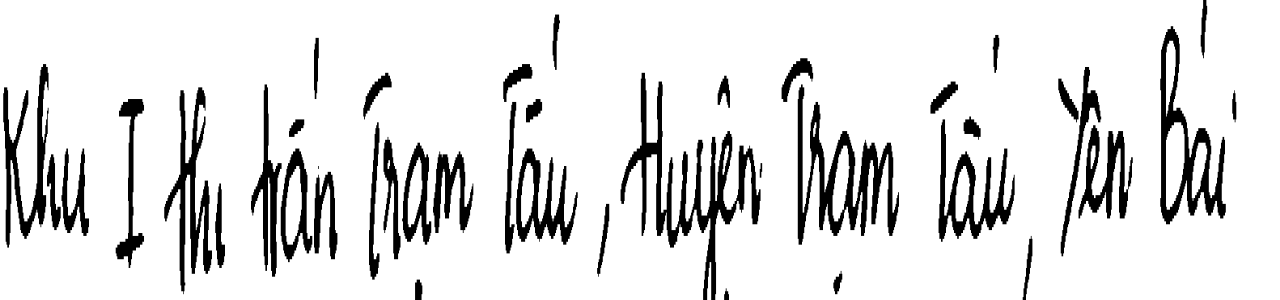 Khu I thị trấn Trạm Tấu, Huyện Trạm Tấu, Yên Bái